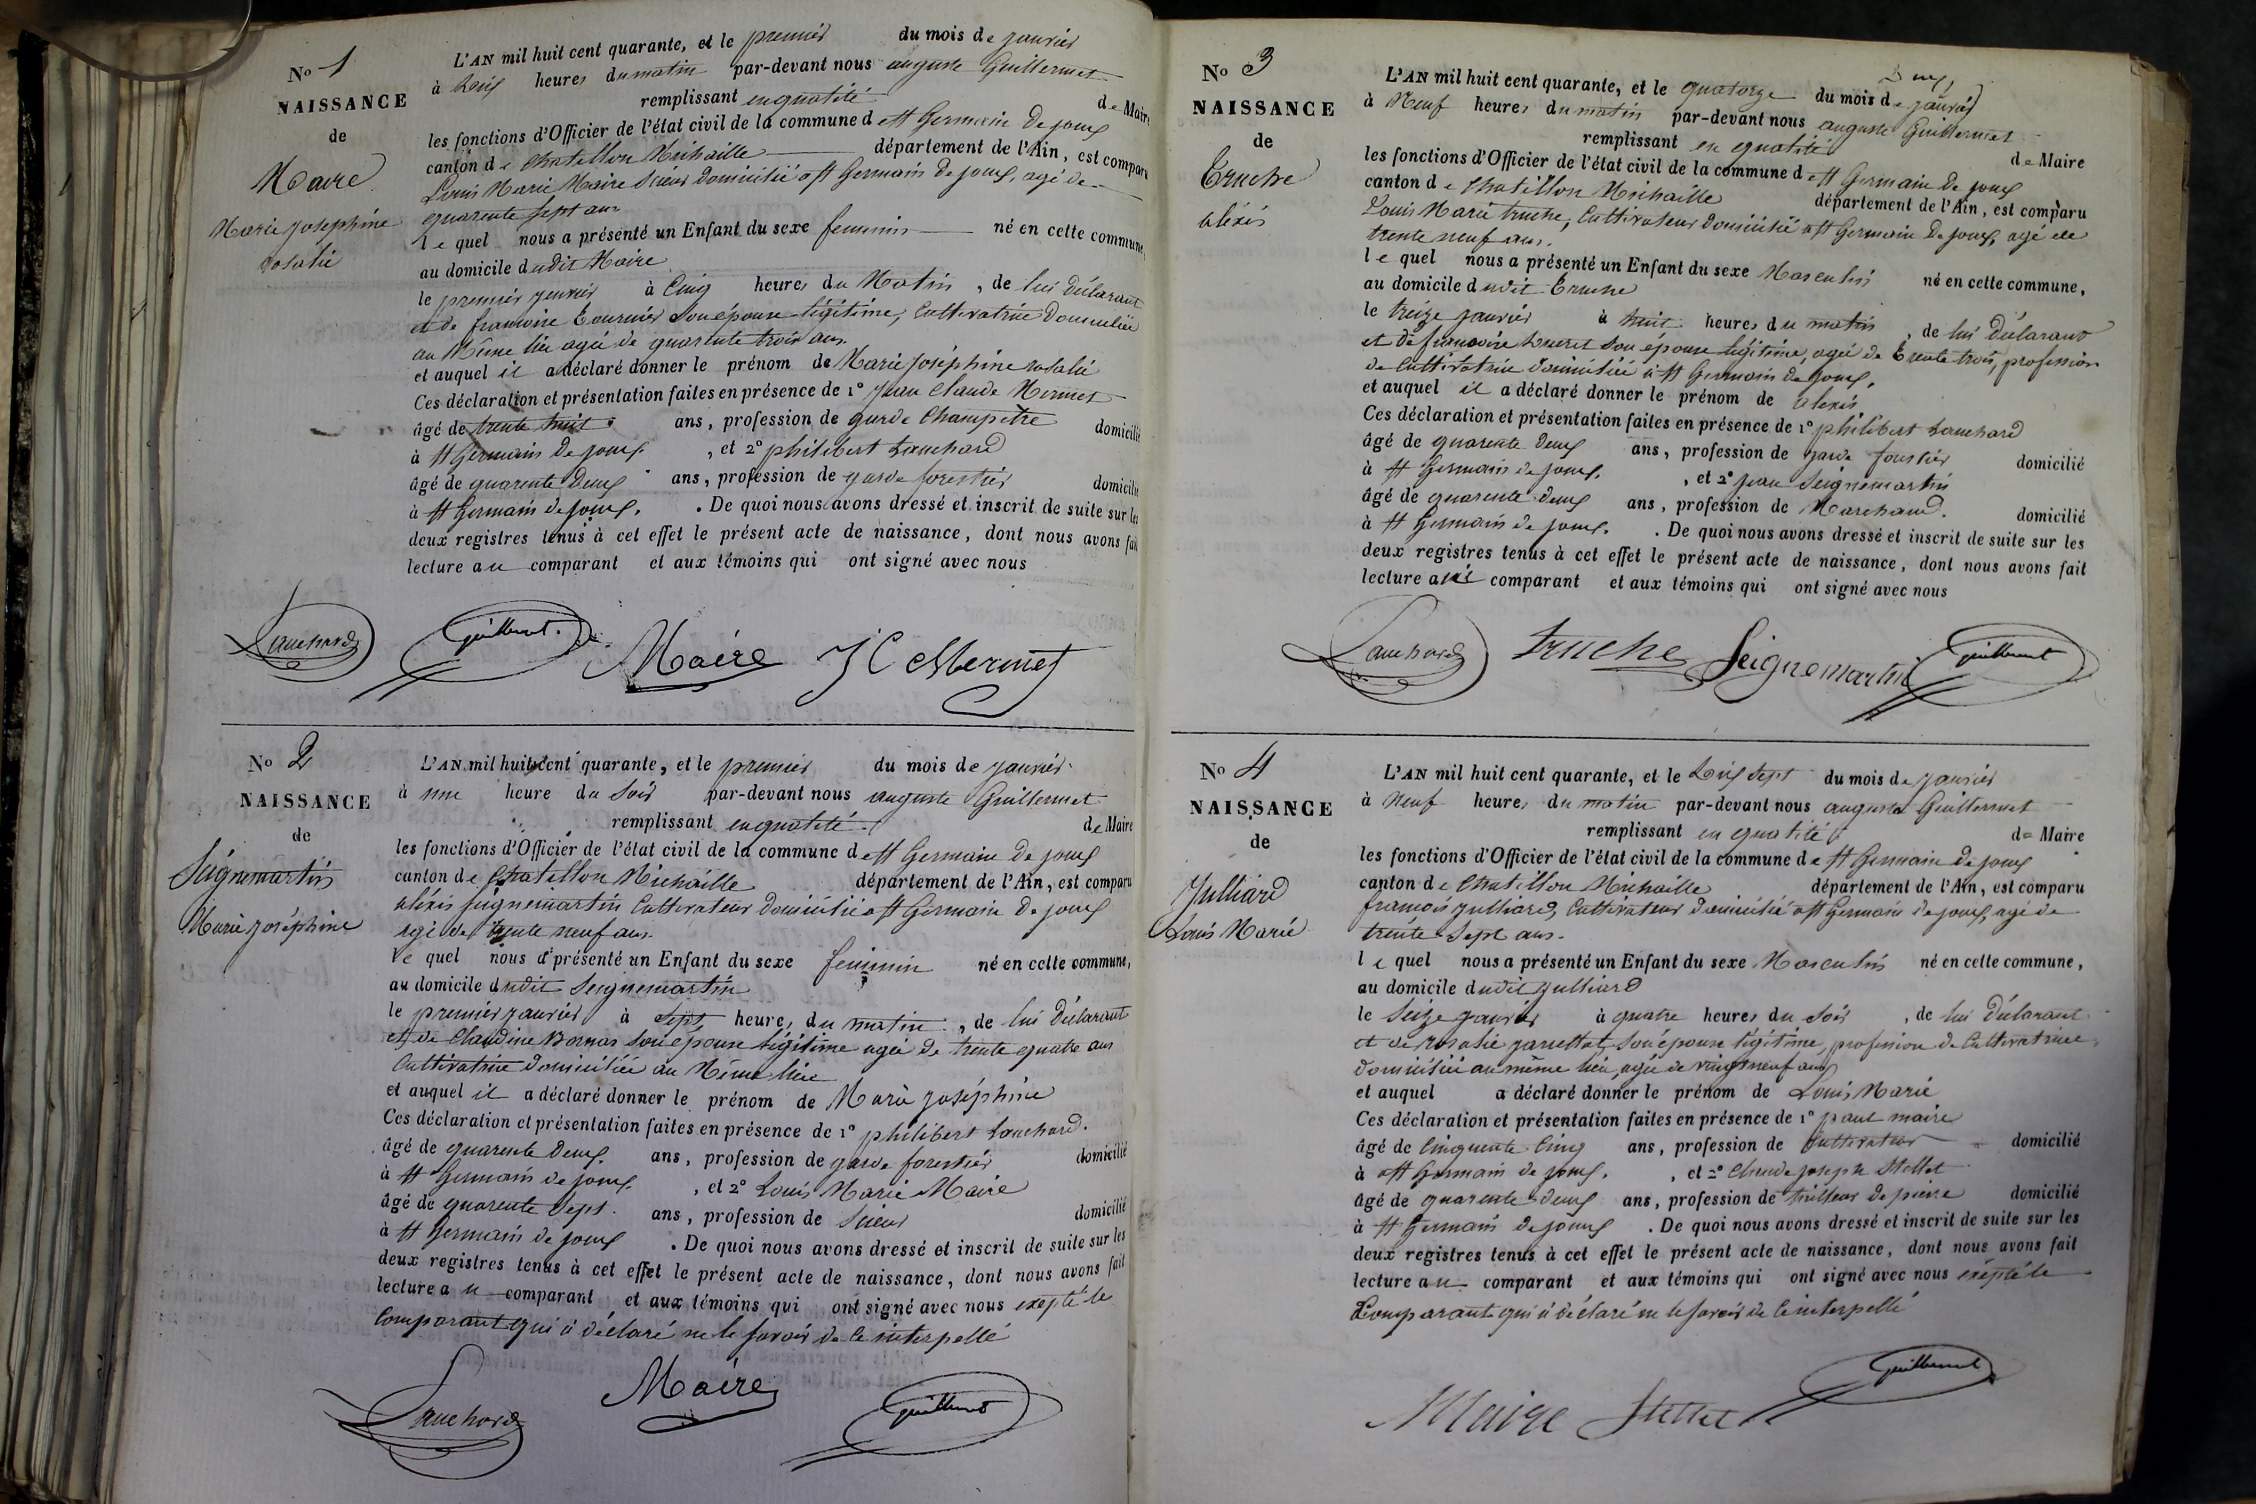 No 1
NAISSANCE
de
Maire
Marie Joséphine
rosalie
L'AN mil huit cent quarante, et le premier du mois de janvier
à heures du matin par-devant nous auguste Guillermet
remplissant en qualité de Maire
les fonctions d'Officier de l'état civil de la commune de St Germain de joux
canton de Chatillon Michaille département de l'Ain, est comparu
Louis Marie Maire Scieur domicilié a St Germain de joux, agé de
quarente sept ans
le quel nous a présenté un Enfant du sexe feminin né en cette commune,
au domicile dudit Maire
le premier janvier à Cinq heures du Matin, de lui déclarant
et de francoise Tournier son épouse légitime, Cultivatrice domiciliée
au Même lieu agée de quarente trois ans.
et auquel il a déclaré donner le prénom de Marie Joséphine rosalie
Ces déclaration et présentation faites en présence de 1° jean Claude Mermet
âgé de trente huit ans, profession de garde Champetre domicilié
à St Germain de joux, et 2° philibert Lauchard
âgé de quarente deux ans, profession de garde forestier domicilié
à St Germain de joux. De quoi nous avons dressé et inscrit de suite sur les
deux registres tenus à cet effet le présent acte de naissance, dont nous avons fait
lecture au comparant et aux témoins qui ont signé avec nous
Lauchard Guillermet Maire JC Mermet
No 2
NAISSANCE
de
Seignemartin
Marie Joséphine
L'AN mil huit cent quarante, et le premier du mois de janvier
à une heure du Soir par-devant nous auguste Guillermet
remplissant en qualité de Maire
les fonctions d'Officier de l'état civil de la commune de St Germain de joux
canton de Chatillon Michaille département de l'Ain, est comparu
aléxis seignemartin Cultivateur domicilié a St Germain de joux
agé de trente neuf ans.
le quel nous a présenté un Enfant du sexe feminin né en cette commune,
au domicile dudit Seignemartin
le premier janvier à Sept heures du matin, de lui déclarant
et de Claudine Bornas son épouse légitime agée de trente quatre ans
Cultivatrice domiciliée au Même lieu
et auquel il a déclaré donner le prénom de Marie joséphine
Ces déclaration et présentation faites en présence de 1° philibert Lauchard.
âgé de quarente deux ans, profession de garde forestier domicilié
à St Germain de joux, et 2° Louis Marie Maire
âgé de quarente Sept ans, profession de Scieur domicilié
à St Germain de joux. De quoi nous avons dressé et inscrit de suite sur les
deux registres tenus à cet effet le présent acte de naissance, dont nous avons fait
lecture au comparant et aux témoins qui ont signé avec nous exepté le
Comparant qui a déclaré ne le savoir de ce interpellé
Lauchard Maire Guillermet
No 3
NAISSANCE
de
Truche
alexis
L'AN mil huit cent quarante, et le quatorze du mois de janvier
à Neuf heures du matin par-devant nous auguste Guillermet
remplissant en qualité de Maire
les fonctions d'Officier de l'état civil de la commune de St Germain de joux
canton de Chatillon Michaille département de l'Ain, est comparu
Louis Marie truche, Cultivateur domicilié a St Germain de joux, agé de
trente neuf ans.
le quel nous a présenté un Enfant du sexe Masculin né en cette commune,
au domicile dudit Truche
le treize janvier à huit heures du matin, de lui déclarant
et de francoise son épouse légitime, agée de Trente trois, profession
de Cultivatrice domiciliée à St Germain de joux,
et auquel il a déclaré donner le prénom de alexis
Ces déclaration et présentation faites en présence de 1° philibert Lauchard
âgé de quarente deux ans, profession de garde domicilié
à St Germain de joux, et 2° jean Seignemartin
âgé de quarente deux ans, profession de Marchand. domicilié
à St Germain de joux. De quoi nous avons dressé et inscrit de suite sur les
deux registres tenus à cet effet le présent acte de naissance, dont nous avons fait
lecture au comparant et aux témoins qui ont signé avec nous
Lauchard truche Seignemartin Guillermet
No 4
NAISSANCE
de
Julliard
Louis Marie
L'AN mil huit cent quarante, et le Dix Sept du mois de janvier
à Neuf heures du matin par-devant nous auguste Guillermet
remplissant en qualité de Maire
les fonctions d'Officier de l'état civil de la commune de St Germain de joux
canton de Chatillon Michaille département de l'Ain, est comparu
francois julliard, Cultivateur domicilié a St Germain de joux, agé de
trente Sept ans.
le quel nous a présenté un Enfant du sexe Masculin né en cette commune,
au domicile dudit julliard
le Seize janvier à quatre heures du Soir, de lui déclarant
et de rosalie son épouse légitime, profession de Cultivatrice,
domiciliée au même lieu, agée de vingt neuf ans
et auquel a déclaré donner le prénom de Louis Marie
Ces déclaration et présentation faites en présence de 1° paul maire
âgé de Cinquente Cinq ans, profession de Cultivateur domicilié
à St Germain de joux, et 2° Claude joseph
âgé de quarente deux ans, profession de tailleur de pierre domicilié
à St Germain de joux. De quoi nous avons dressé et inscrit de suite sur les
deux registres tenus à cet effet le présent acte de naissance, dont nous avons fait
lecture au comparant et aux témoins qui ont signé avec nous exépté le
Comparant qui a déclaré ne le savoir de ce interpellé
Maire Guillermet